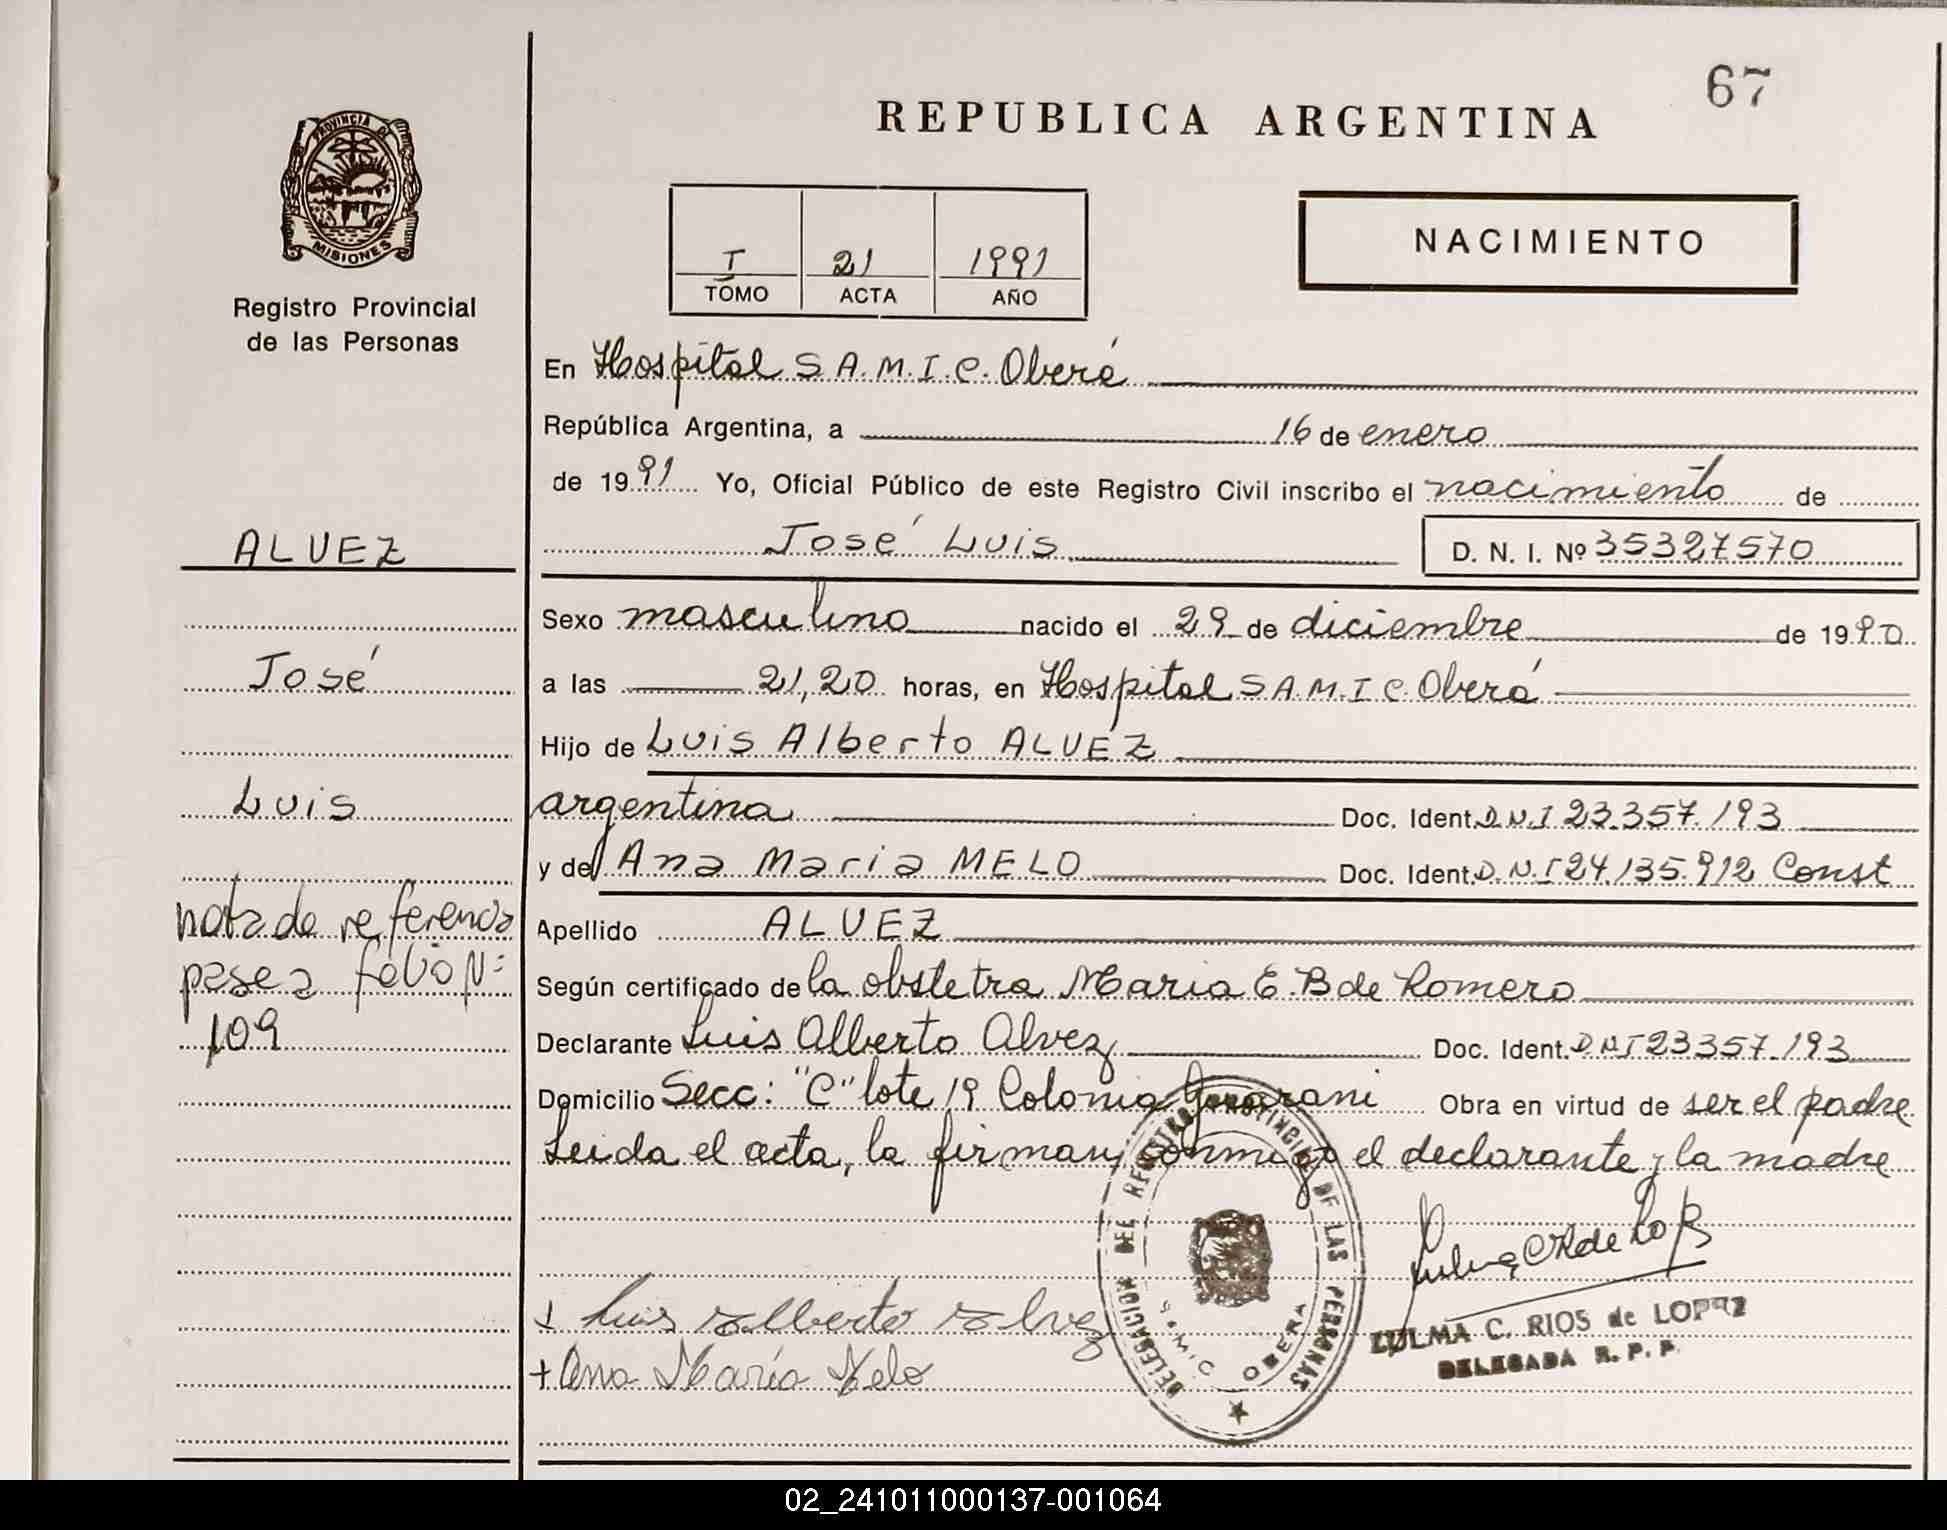 67
REPUBLICA ARGENTINA
PROVINCIA DE
MISIONES
Registro Provincial
de las Personas
T 21 1991
TOMO ACTA AÑO
NACIMIENTO
En Hospital S A.M.I.C. Oberá
República Argentina, a 16 de enero
de 1991 Yo, Oficial Público de este Registro Civil inscribo el nacimiento de
José Luis D. N. I. Nº 35327570
Sexo masculino nacido el 29 de diciembre de 1990
a las 21,20 horas, en Hospital S A.M.I C. Oberá
Hijo de Luis Alberto ALVEZ
argentina Doc. Ident. D.N.I 23.357.193
y de Ana Maria MELO Doc. Ident. D.N.I 24.135.912 Const
Apellido ALVEZ
Según certificado de la obstetra Maria E. B de Romero
Declarante Luis Alberto Alvez Doc. Ident. D NI 23357.193
Domicilio Secc: "C" lote 19 Colonia Guarani Obra en virtud de ser el padre
Leida el acta, la firman conmigo el declarante y la madre
ALVEZ
José
Luis
nota de referencia
pase a folio N:
109
+ Luis Alberto Alvez
+ Ana María Melo
DELEGACION DEL REGISTRO PROVINCIAL DE LAS PERSONAS
SAMIC OBERA
ZULMA C. RIOS de LOPEZ
DELEGADA R. P. P.
02_241011000137-001064